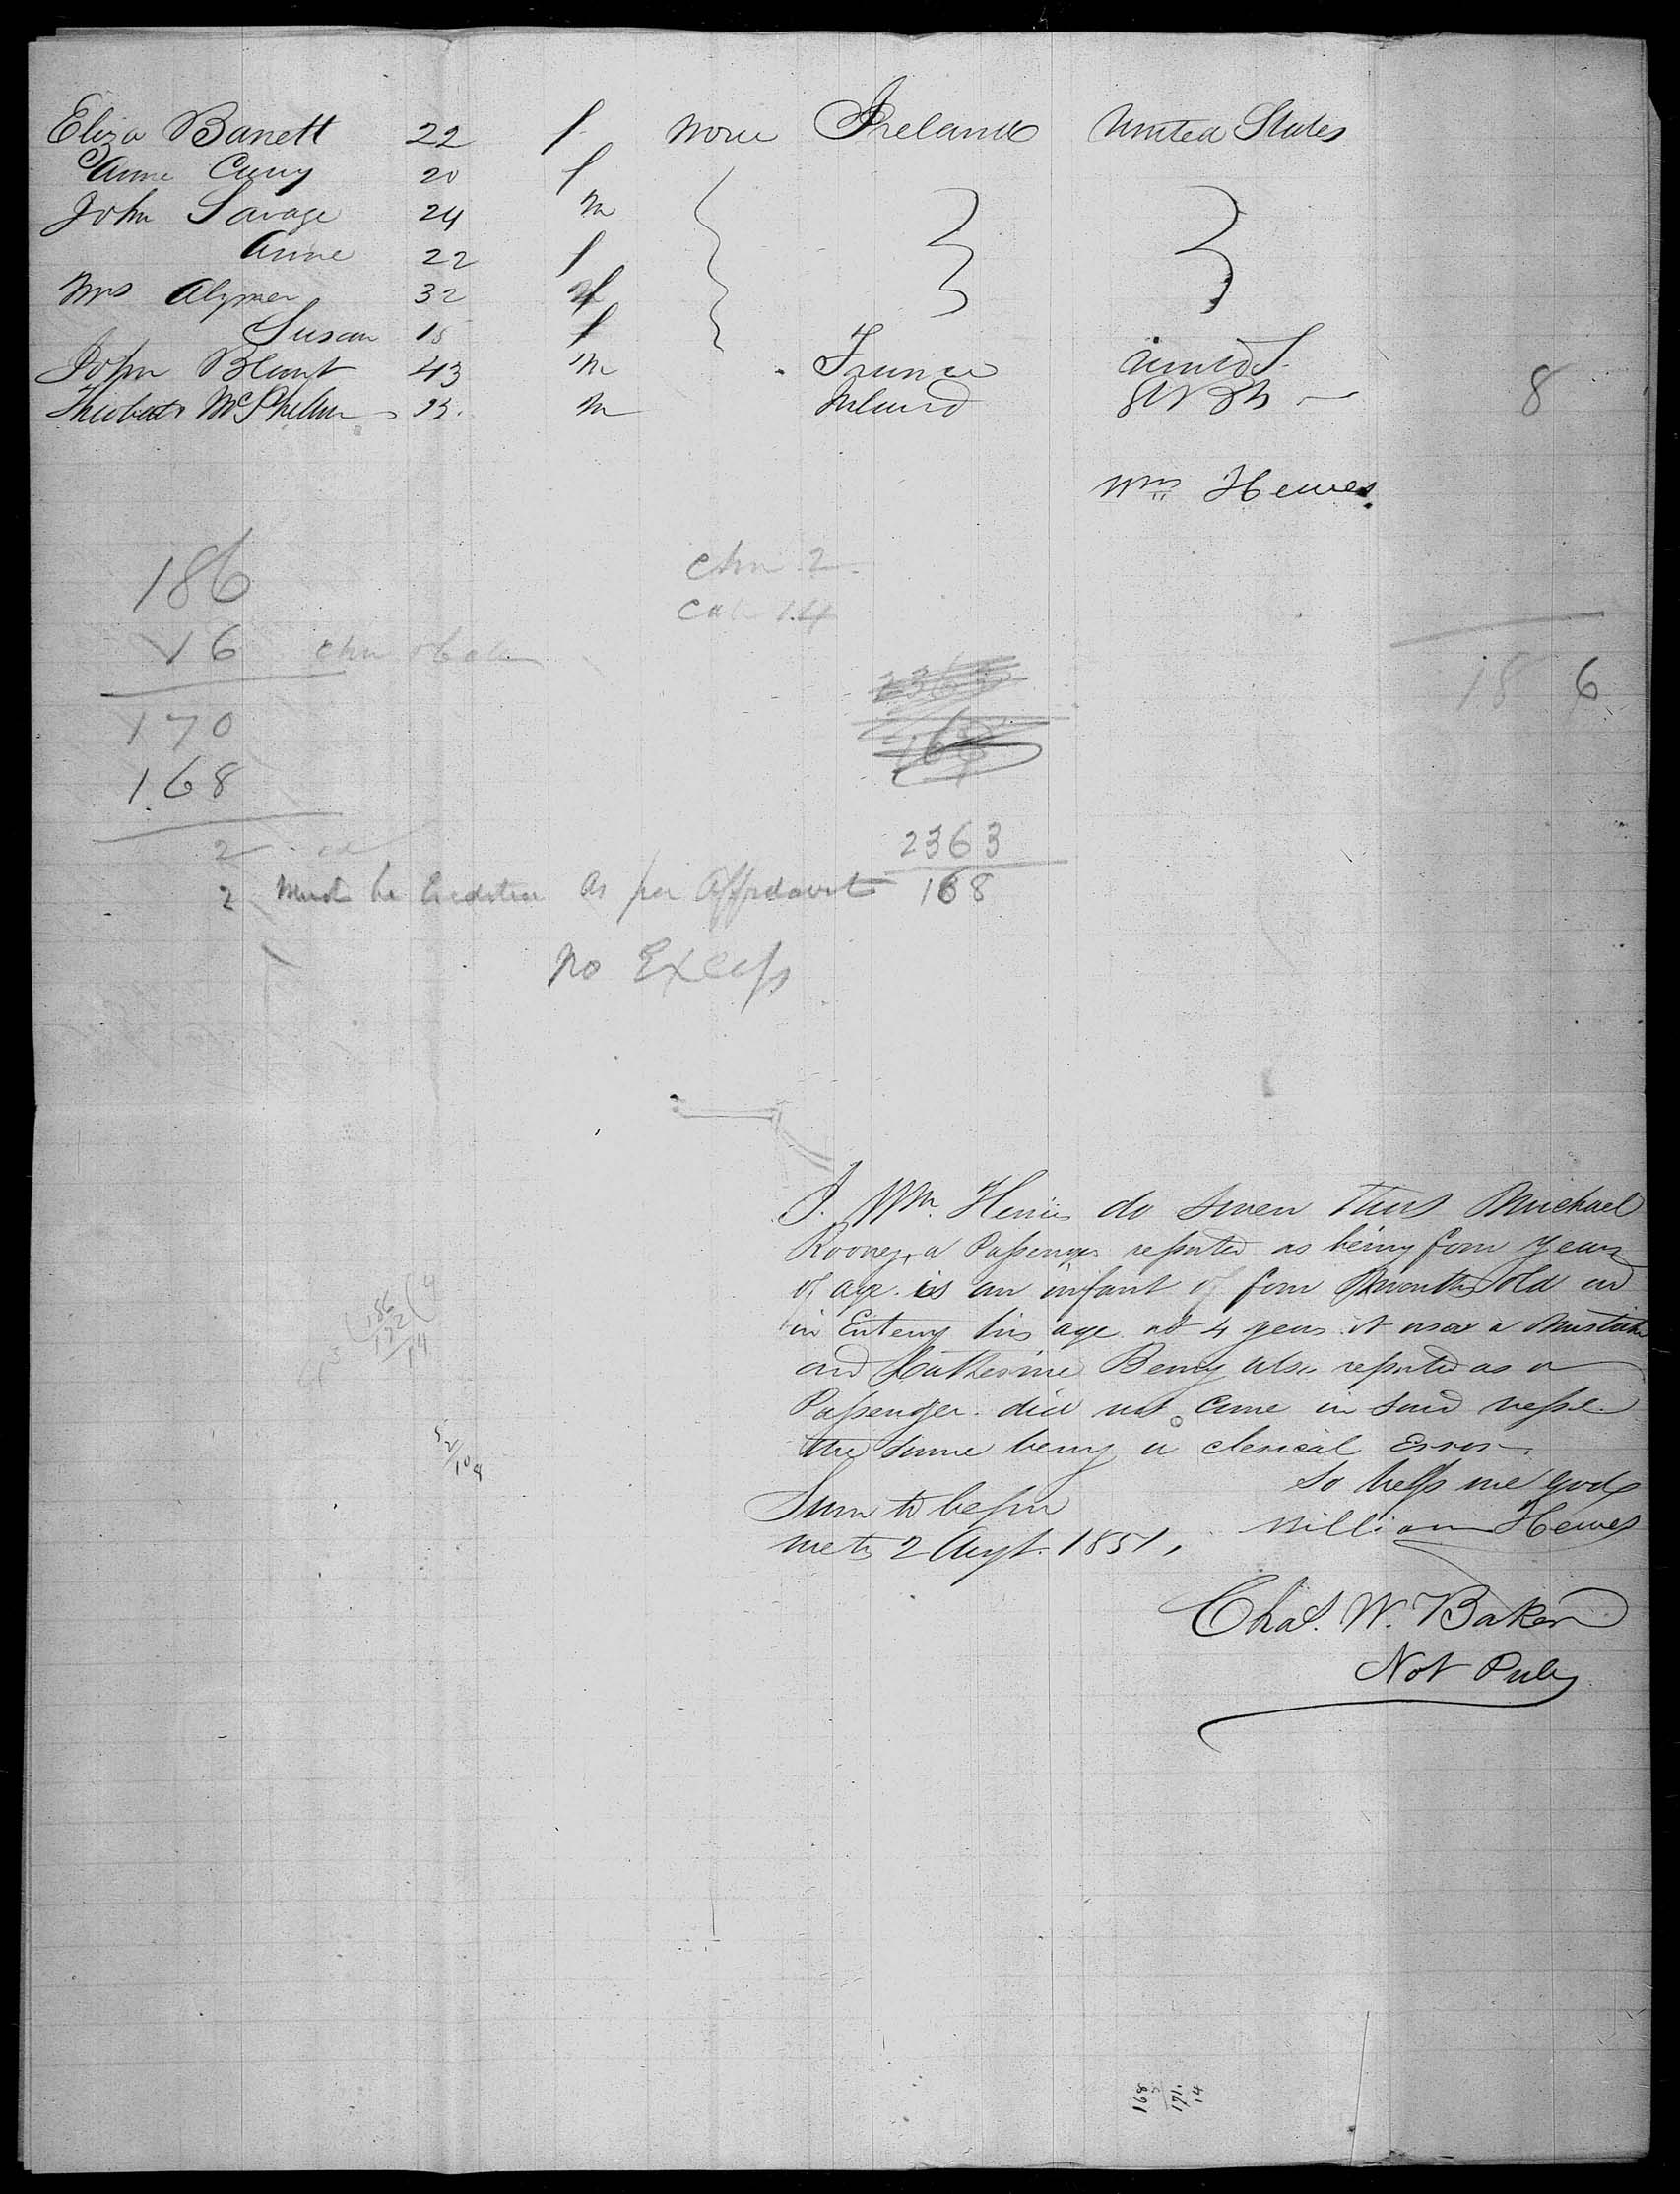 Eliza Barrett 22 f none Ireland United States
Anne Curry 20 f
John Savage 24 m
Anne 22 f
Mrs Alymer 32 f
Susan 18 f
John Blunt 43 m France United S.
McPhelim m Ireland 8
Wm Hewes
186
16
170
168
2
chn 2
cab 14
2365
168
2363
168
18 6
2 Must be as per Affidavit
No Excess
I. Wm. Hewes do swear that Michael
Rooney, a Passenger reported as being four years
of age. is an infant of four months old and
in Entering his age at 4 years it was a mistake
and Catherine Berry also reported as a
Passenger. did not come in said vessel
the same being a clerical Error.
So help me god
Sworn to before
me this 2 Augt. 1851, William Hewes
Chas. W. Baker
Not Pub
186 (4
172
14
168
171
14